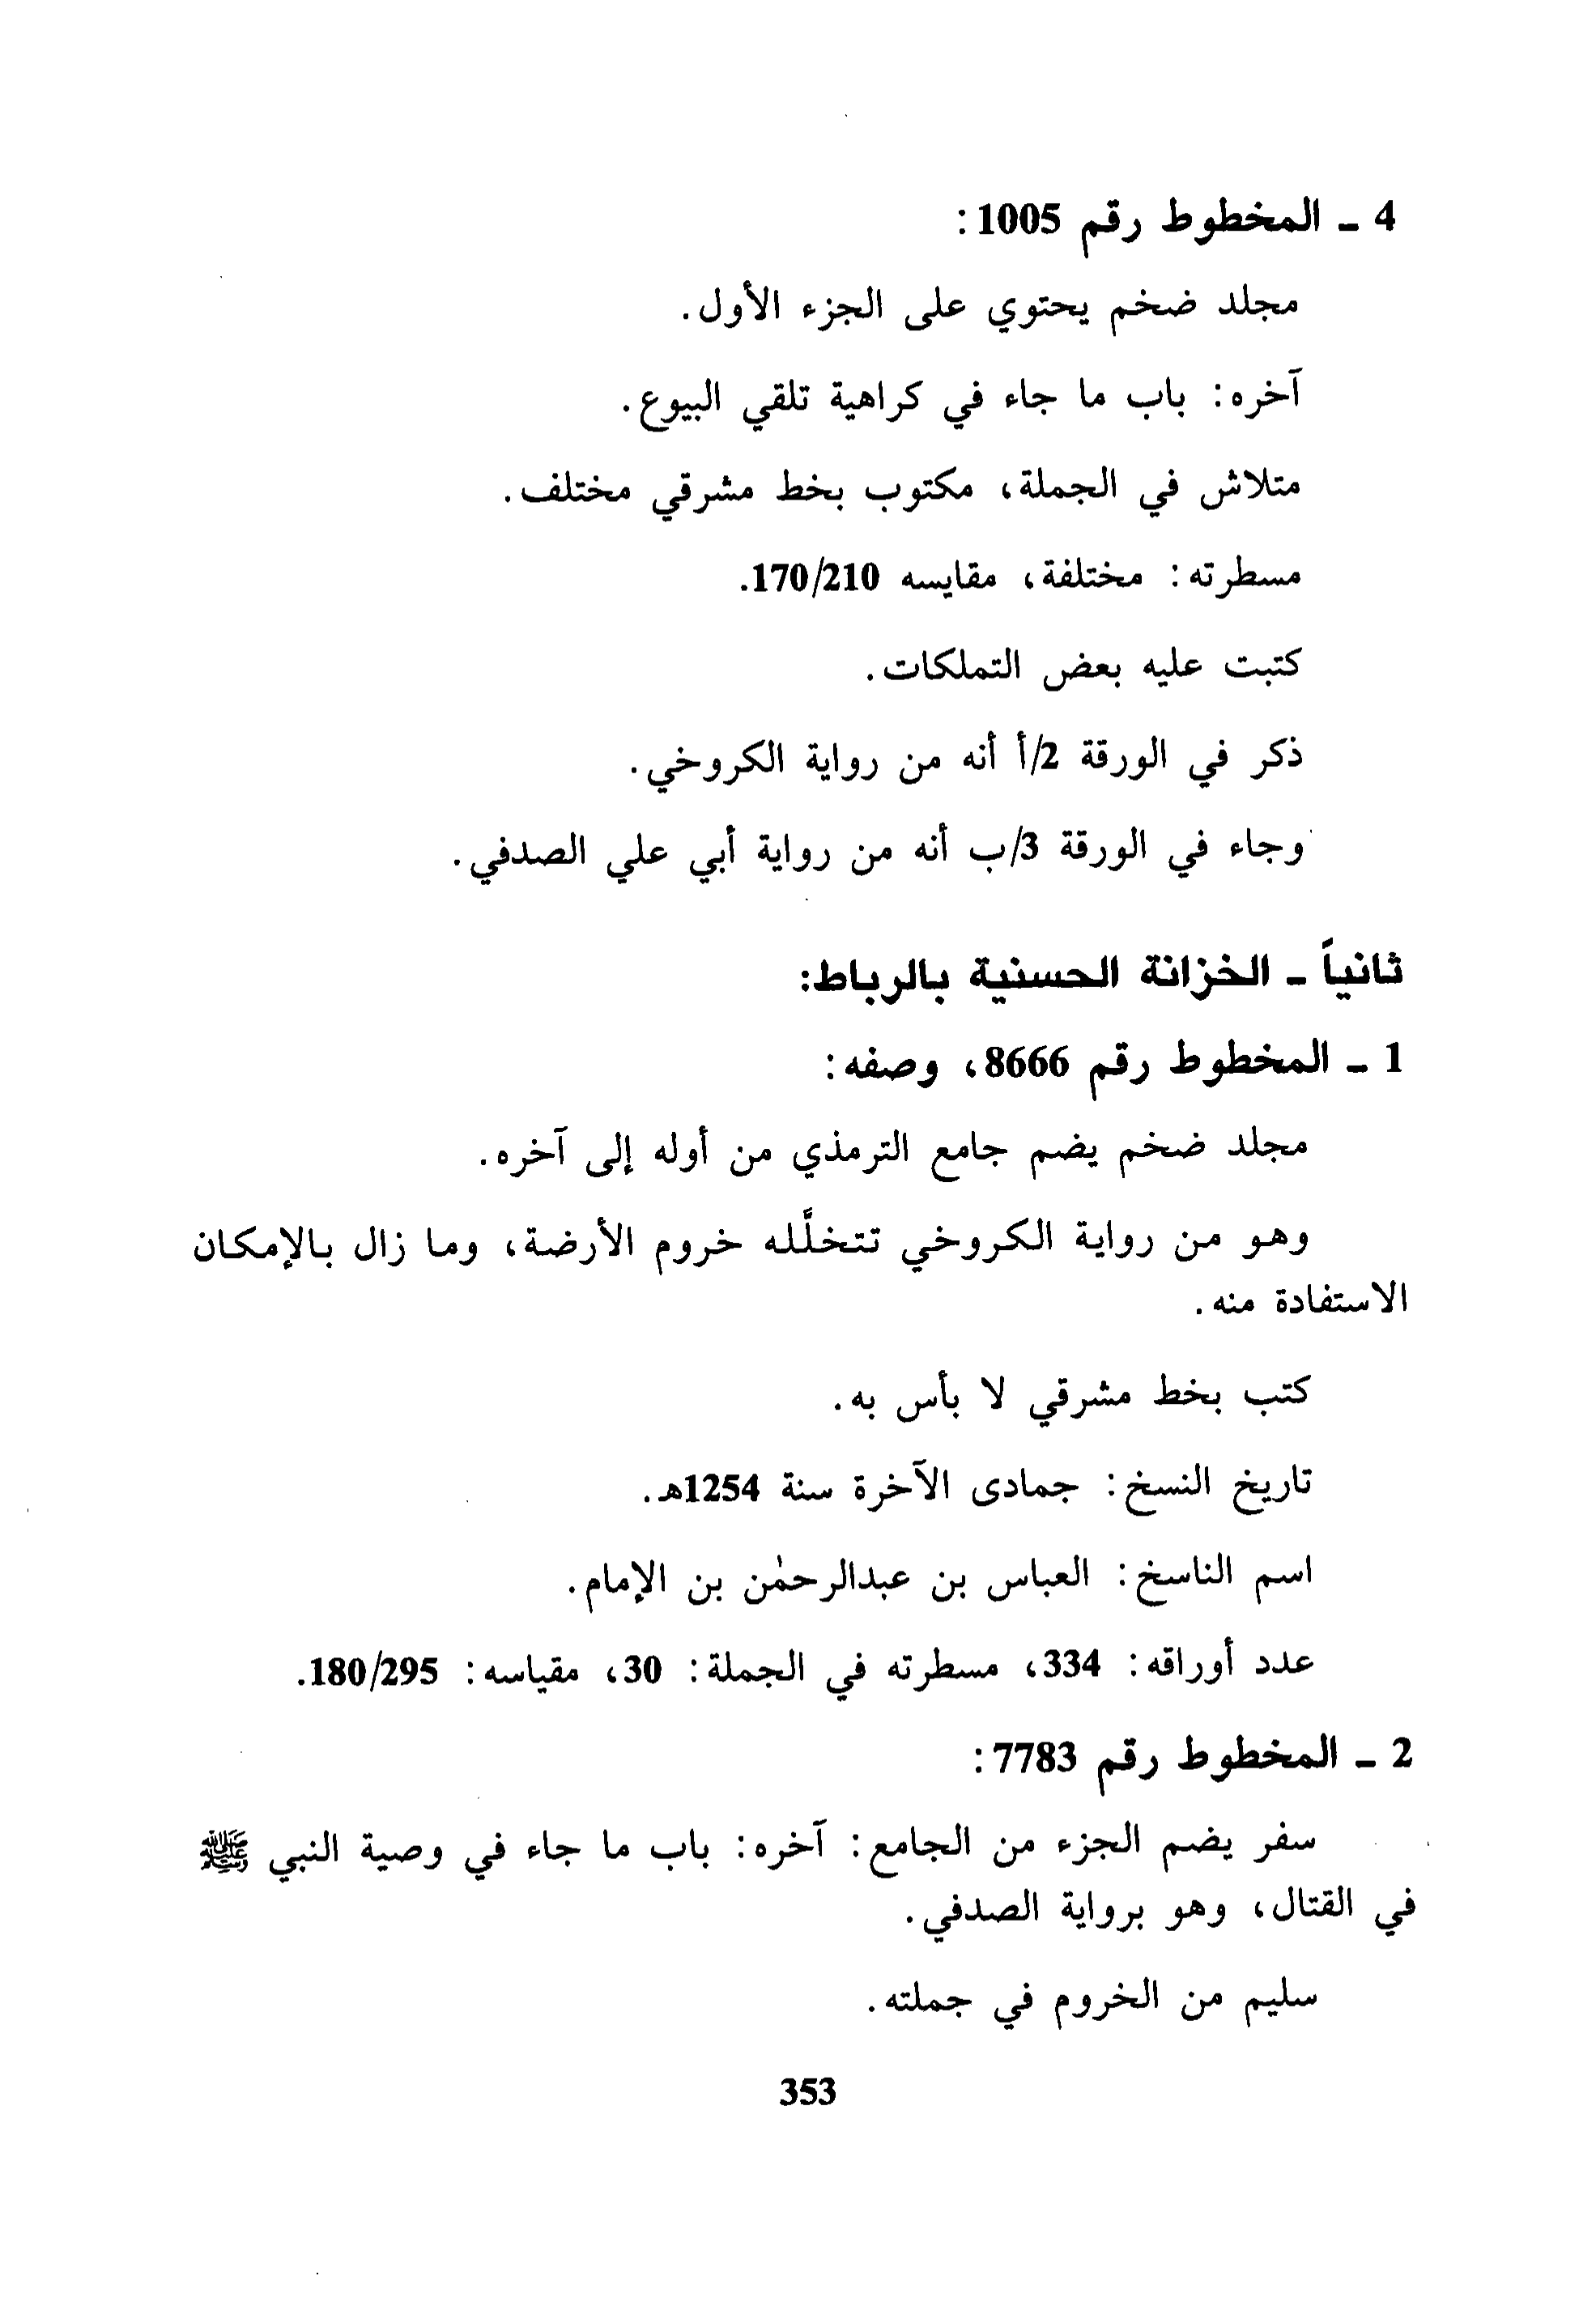 4 ـ المخطوط رقم 1005:
مجلد ضخم يحتوي على الجزء الأول.
آخره: باب ما جاء في كراهية تلقي البيوع.
متلاش في الجملة، مكتوب بخط مشرقي مختلف.
مسطرته: مختلفة، مقايسه 170/210.
كتبت عليه بعض التملكات.
ذكر في الورقة 2/أ أنه من رواية الكروخي.
وجاء في الورقة 3/ب أنه من رواية أبي علي الصدفي.
ثانياً ـ الخزانة الحسنية بالرباط:
1 ـ المخطوط رقم 8666، وصفه:
مجلد ضخم يضم جامع الترمذي من أوله إلى آخره.
وهو من رواية الكروخي تتخلَّله خروم الأرضة، وما زال بالإمكان
الاستفادة منه.
كتب بخط مشرقي لا بأس به.
تاريخ النسخ: جمادى الآخرة سنة 1254هـ.
اسم الناسخ: العباس بن عبدالرحمٰن بن الإمام.
عدد أوراقه: 334، مسطرته في الجملة: 30، مقياسه: 180/295.
2 ـ المخطوط رقم 7783:
سفر يضم الجزء من الجامع: آخره: باب ما جاء في وصية النبي ﷺ
في القتال، وهو برواية الصدفي.
سليم من الخروم في جملته.
353